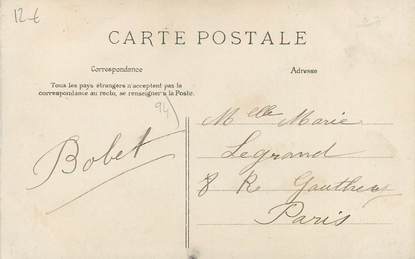 12-€
CARTE POSTALE
Correspondance
Adresse
Tous les pays étrangers n'acceptent pas la
correspondance au recto, se renseigner à la Poste.
94)
Bobet
Mlle Marie
Legrand
8 Re Gauthey
Paris